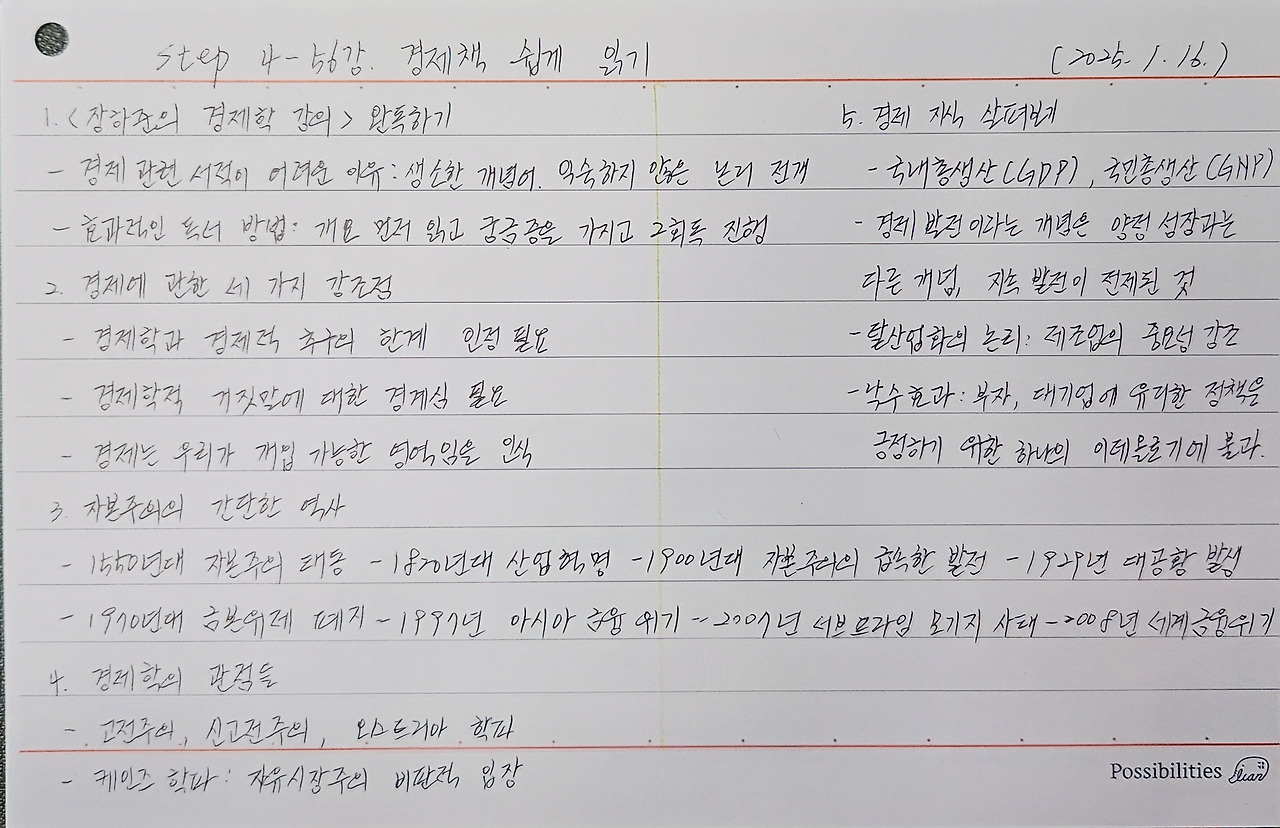 Step 4-56강. 경제책 쉽게 읽기 (2025. 1. 16.)
1. <장하준의 경제학 강의> 완독하기
- 경제 관련 서적이 어려운 이유: 생소한 개념어. 익숙하지 않은 논리 전개
- 효과적인 독서 방법: 개요 먼저 읽고 궁금증을 가지고 2회독 진행
2. 경제에 관한 세 가지 강조점
- 경제학과 경제적 추구의 한계 인정 필요
- 경제학적 거짓말에 대한 경계심 필요
- 경제는 우리가 개입 가능한 영역임을 인식
3. 자본주의의 간단한 역사
- 1550년대 자본주의 태동 - 1820년대 산업혁명 - 1900년대 자본주의의 급속한 발전 - 1929년 대공황 발생
- 1970년대 금본위제 폐지 - 1997년 아시아 금융위기 - 2007년 서브프라임 모기지 사태 - 2008년 세계금융위기
4. 경제학의 관점들
- 고전주의, 신고전주의, 오스트리아 학파
- 케인즈 학파: 자유시장주의 비판적 입장
5. 경제 지식 살펴보기
- 국내총생산(GDP), 국민총생산(GNP)
- 경제 발전이라는 개념은 양적 성장과는
다른 개념, 지속 발전이 전제된 것
- 탈산업화의 논리: 제조업의 중요성 강조
- 낙수효과: 부자, 대기업에 유리한 정책을
긍정하기 위한 하나의 이데올로기에 불과.
Possibilities
Lian